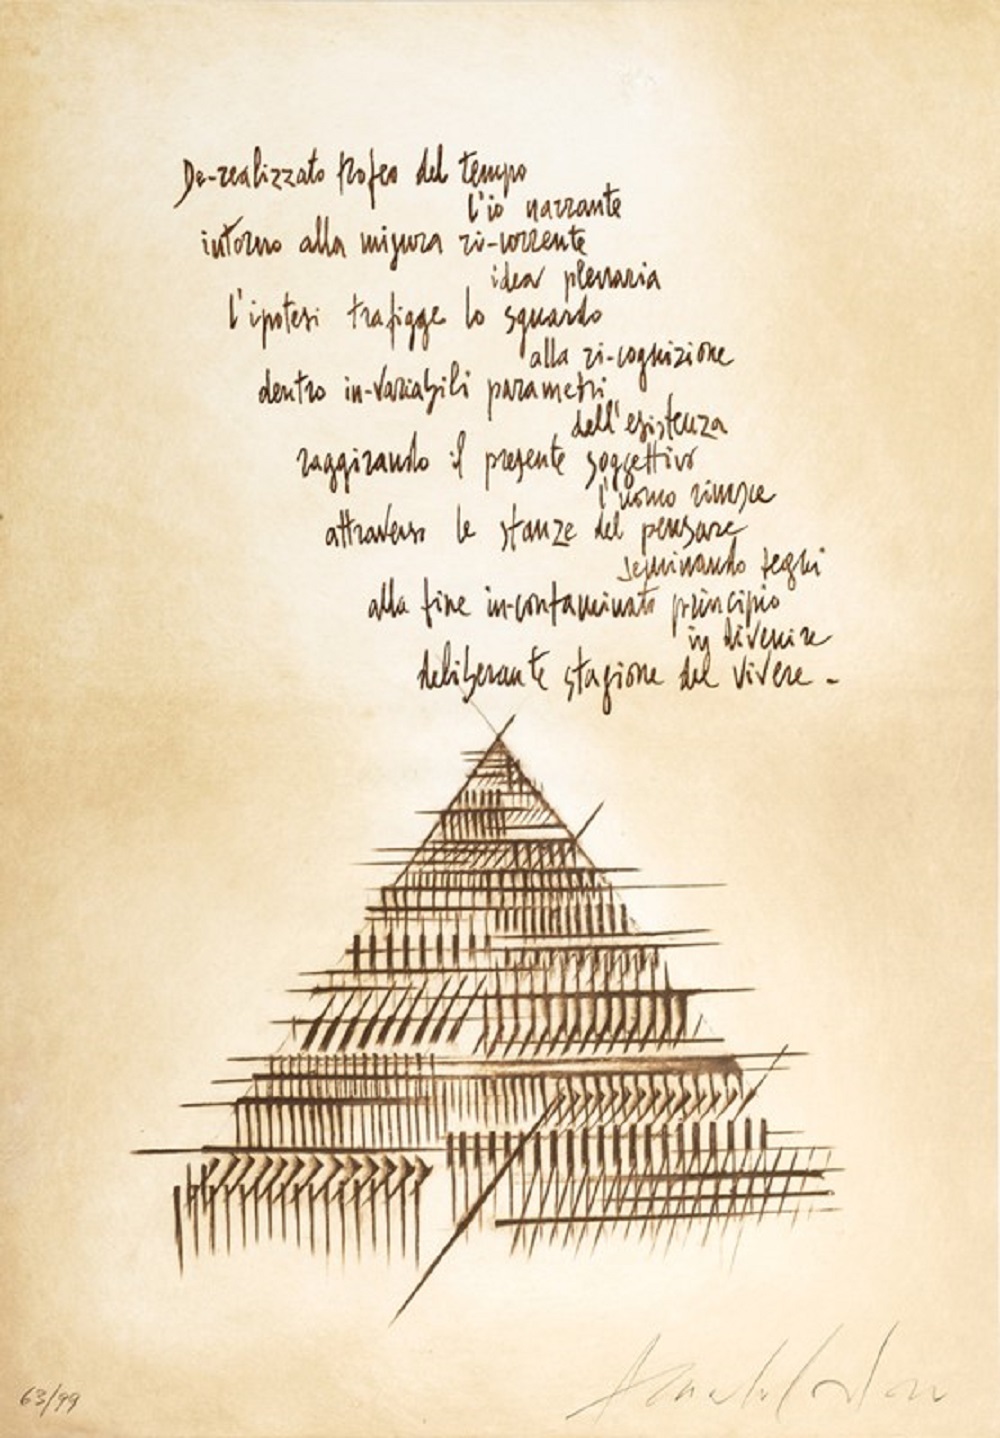 De-realizzato trofeo del tempo
l'io narrante
intorno alla misura ri-corrente
idea plenaria
l'ipotesi trafigge lo sguardo
alla ri-cognizione
dentro in-variabili parametri
dell'esistenza
raggirando il presente soggettivo
l'uomo
attraverso le stanze del pensare
seminando
alla fine in-contaminato principio
in divenire
deliberante stagione del vivere -
63/99